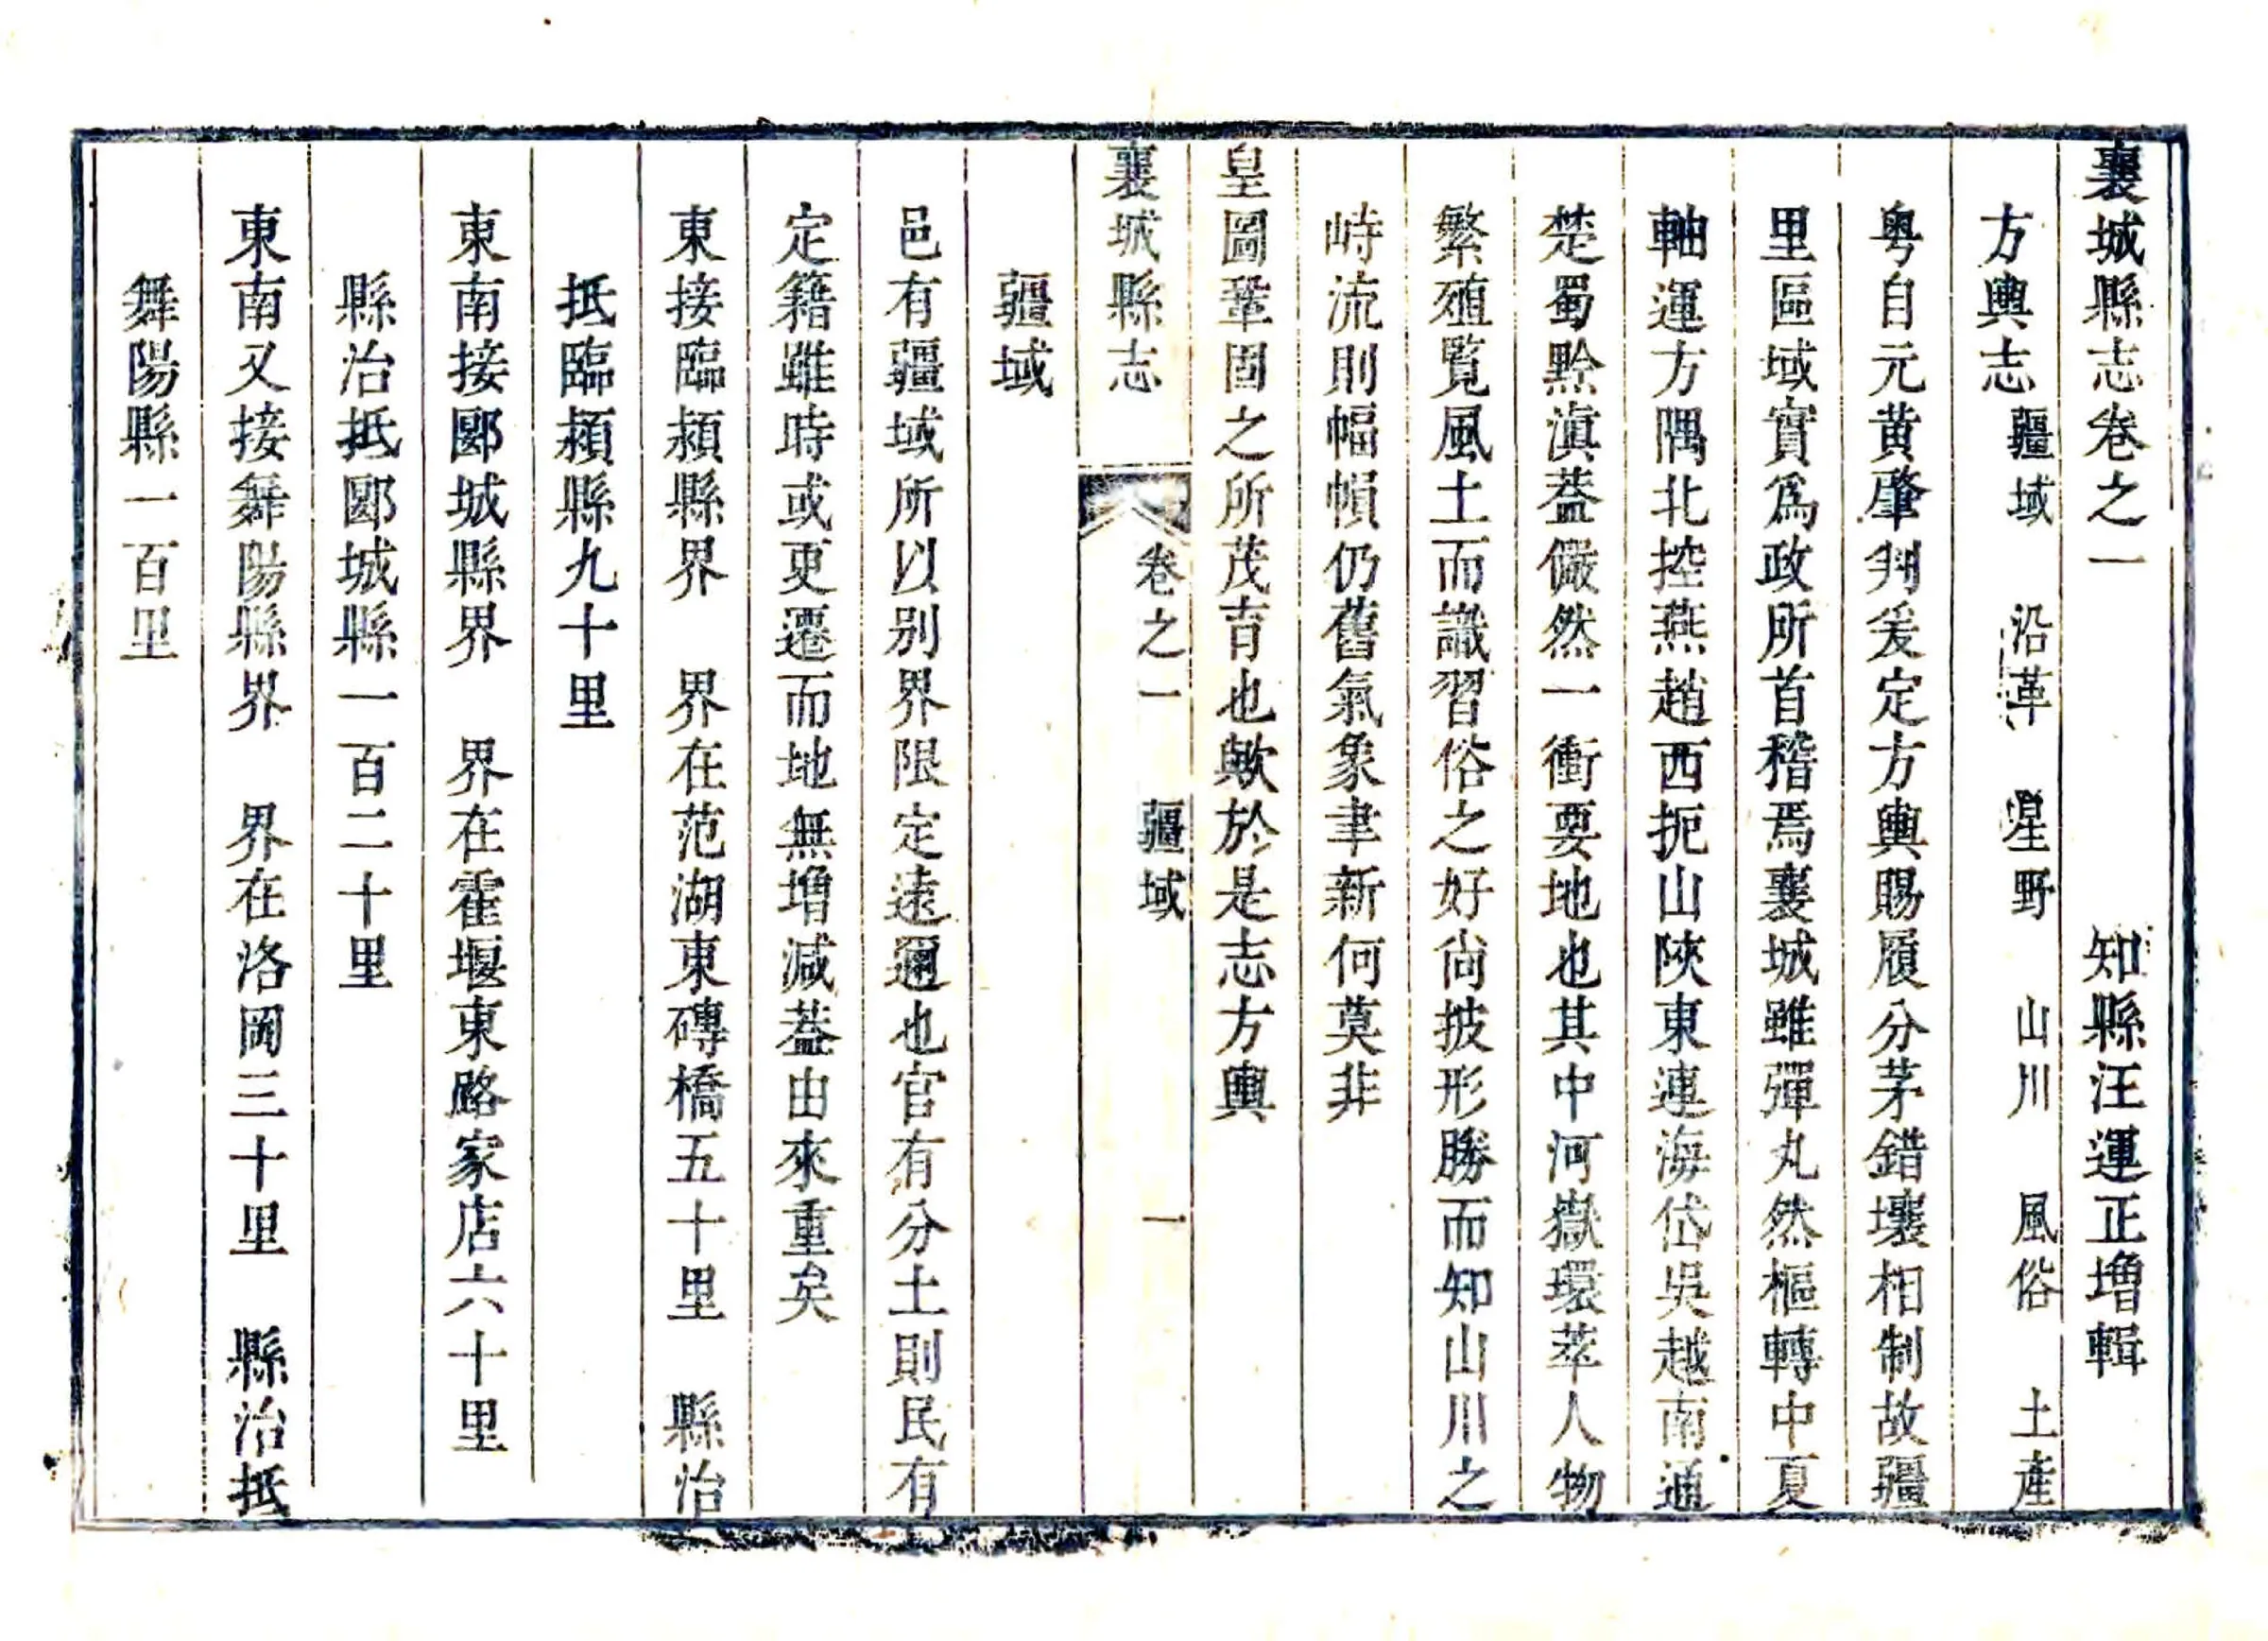 襄城縣志卷之一　知縣汪運正增輯
方輿志　疆域　沿革　星野　山川　風俗　土產
粵自元黃肇判爰定方輿賜履分茅錯壤相制故疆
里區域實爲政所首稽焉襄城雖彈丸然樞轉中夏
軸運方隅北控燕趙西扼山陝東連海岱吳越南通
楚蜀黔滇葢儼然一衝要地也其中河嶽環萃人物
繁殖覧風土而識習俗之好尙披形勝而知山川之
峙流則幅幀仍舊氣象聿新何莫非
皇圖鞏固之所茂育也歟於是志方輿
襄城縣志　卷之一　疆域　一
疆域
邑有疆域所以别界限定遠邇也官有分土則民有
定籍雖時或更遷而地無增减葢由來重矣
東接臨潁縣界　界在范湖東磚橋五十里　縣治
抵臨潁縣九十里
東南接郾城縣界　界在霍堰東路家店六十里
縣治抵郾城縣一百二十里
東南又接舞陽縣界　界在洛岡三十里　縣治抵
舞陽縣一百里